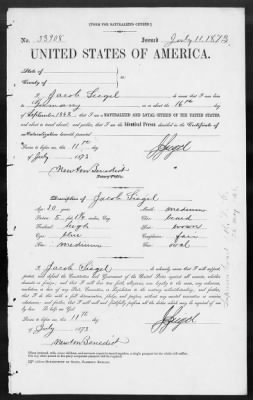 [FORM FOR NATURALIZED CITIZEN.]
No. 33908 Issued July 11. 1873
UNITED STATES OF AMERICA.
State of
County of
I, Jacob Siegel do swear that I was born
in Germany on or about the 16th day
of September 1842 that I am a NATURALIZED AND LOYAL CITIZEN OF THE UNITED STATES
and about to travel abroad; and further, that I am the Identical Person described in the Certificate of
Naturalization herewith presented.
Sworn to before me, this 11th day
of July 1873
J Siegel
Newton Benedict
Notary Public.
Description of Jacob Siegel
Age: 30 years Mouth: medium
Stature: 5 feet inches, Eng. Chin:
Forehead: high Hair: brown
Eyes: blue Complexion: fair
Nose: medium Face: oval
I, Jacob Siegel do solemnly swear that I will support,
protect, and defend the Constitution and Government of the United States against all enemies, whether
domestic or foreign; and that I will bear true faith, allegiance, and loyalty to the same, any ordinance,
resolution or law of any State, Convention, or Legislature to the contrary notwithstanding; and further,
that I do this with a full determination, pledge, and purpose, without any mental reservation or evasion
whatsoever; and further, that I will well and faithfully perform all the duties which may be required of me
by law: So help me God.
Sworn to before me, this 11th day
of July 1873
J Siegel
Newton Benedict